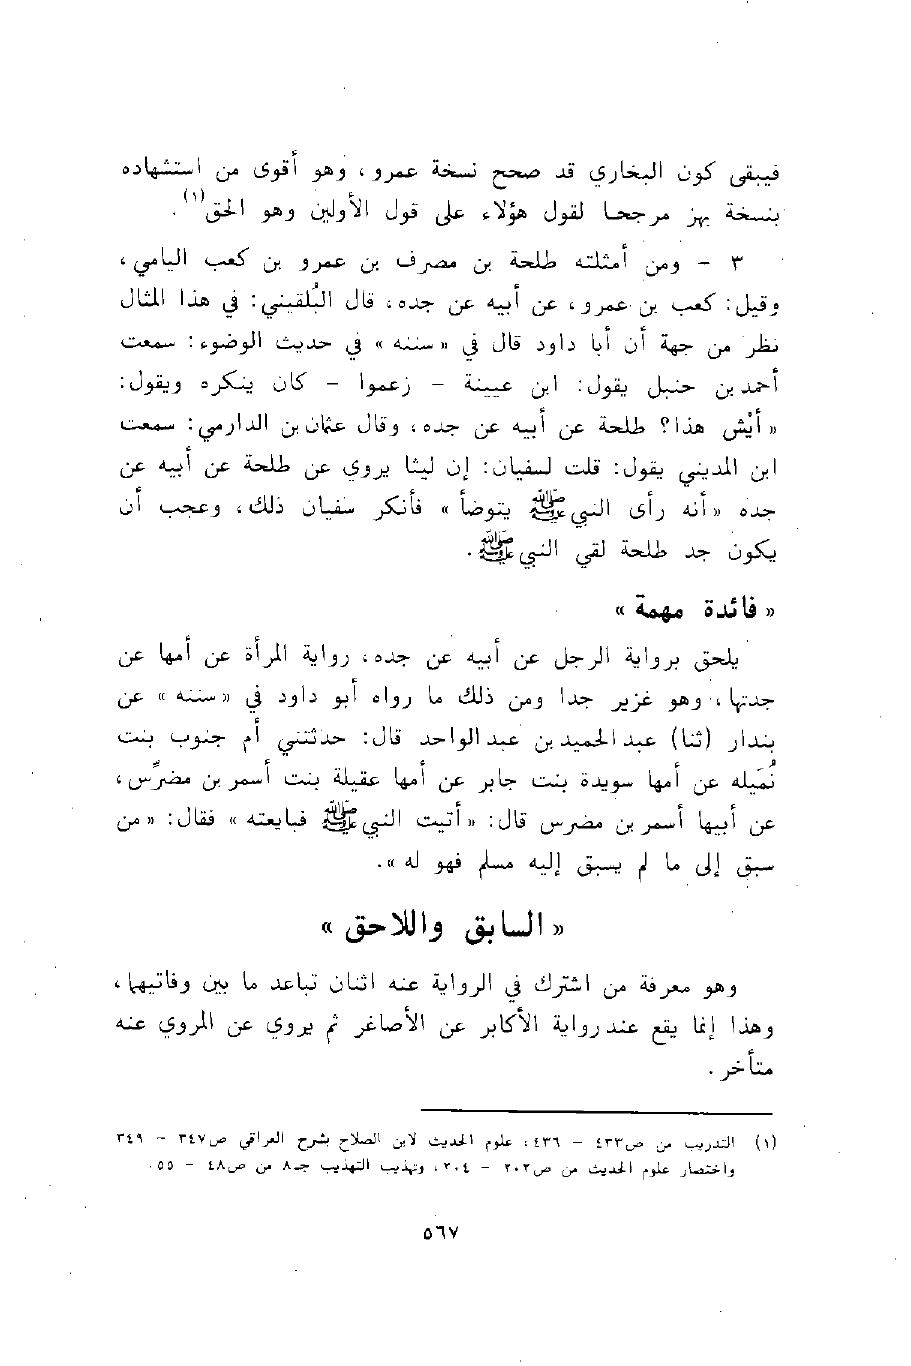 فيبقى كون البخاري قد صحح نسخة عمرو ، وهو أقوى من استشهاده
بنسخة بهز مرجحا لقول هؤلاء على قول الأولين وهو الحق(١) .
٣ - ومن أمثلته طلحة بن مصرف بن عمرو بن كعب اليامي ،
وقيل : كعب بن عمرو ، عن أبيه عن جده ، قال البُلقيني : في هذا المثال
نظر من جهة أن أبا داود قال في « سننه » في حديث الوضوء : سمعت
أحمد بن حنبل يقول : ابن عيينة - زعموا - كان ينكره ويقول :
« أيْش هذا ؟ طلحة عن أبيه عن جده ، وقال عثمان بن الدارمي : سمعت
ابن المديني يقول : قلت لسفيان : إن ليثا يروي عن طلحة عن أبيه عن
جده « أنه رأى النبي ﷺ يتوضأ » فأنكر سفيان ذلك ، وعجب أن
يكون جد طلحة لقي النبي ﷺ .
« فائدة مهمة »
يلحق برواية الرجل عن أبيه عن جده ، رواية المرأة عن أمها عن
جدتها ، وهو غزير جدا ومن ذلك ما رواه أبو داود في « سننه » عن
بندار (ثنا) عبد الحميد بن عبد الواحد قال : حدثتني أم جنوب بنت
نُمَيله عن أمها سويدة بنت جابر عن أمها عقيلة بنت أسمر بن مضرِّس ،
عن أبيها أسمر بن مضرس قال : « أتيت النبي ﷺ فبايعته » فقال : « من
سبق إلى ما لم يسبق إليه مسلم فهو له » .
« السابق واللاحق »
وهو معرفة من اشترك في الرواية عنه اثنان تباعد ما بين وفاتيهما ،
وهذا إنما يقع عند رواية الأكابر عن الأصاغر ثم يروي عن المروي عنه
متأخر .
(١) التدريب من ص٤٣٣ - ٤٣٦ ؛ علوم الحديث لابن الصلاح بشرح العراقي ص٣٤٧ - ٣٤٩
واختصار علوم الحديث من ص٢٠٢ - ٢٠٤ ، وتهذيب التهذيب جـ٨ من ص٤٨ - ٥٥ .
٥٦٧